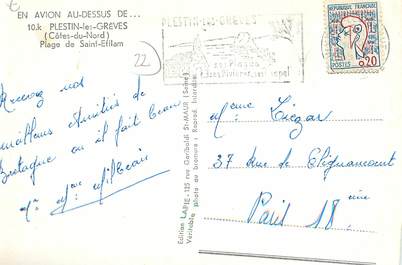 EN AVION AU-DESSUS DE...
10.k PLESTIN-les-GRÈVES
(Côtes-du-Nord)
Plage de Saint-Efflam
22
PLESTIN-les-GRÈVES
REPUBLIQUE FRANCAISE
POSTES 0,20
Recevez nos
meilleures Amitiés de
Bretagne où il fait beau
Mr Mme
Edition LAPIE - 125 rue Garibaldi St-MAUR (Seine)
Véritable photo au bromure : Reprod. Interdite
Mme
37 Rue de Clignancourt
Paris 18 ème